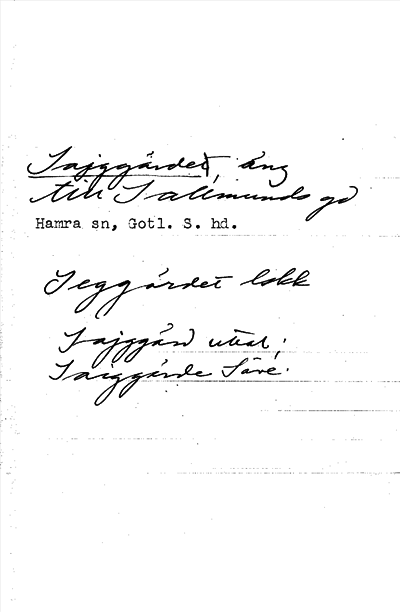 Sajggärdet, äng
till Sallmunds gd
Hamra sn, Gotl. S. hd.
Seggärdet lokk
Sajggård uttal;
Saiggärde Säve.